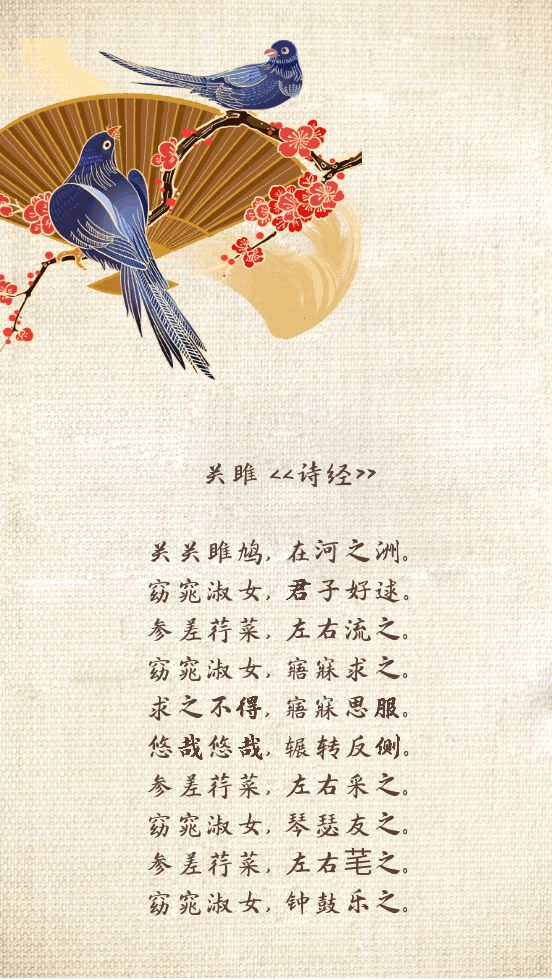 关雎 <<诗经>>
关关雎鸠, 在河之洲。
窈窕淑女, 君子好逑。
参差荇菜, 左右流之。
窈窕淑女, 寤寐求之。
求之不得, 寤寐思服。
悠哉悠哉, 辗转反侧。
参差荇菜, 左右采之。
窈窕淑女, 琴瑟友之。
参差荇菜, 左右芼之。
窈窕淑女, 钟鼓乐之。